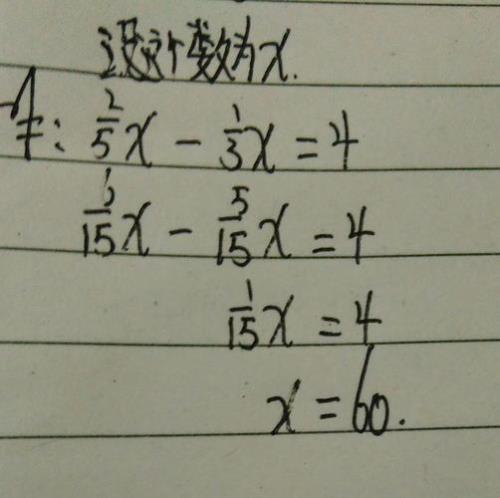 设这个数为x.
解: 2/5 x - 1/3 x = 4
6/15 x - 5/15 x = 4
1/15 x = 4
x = 60.